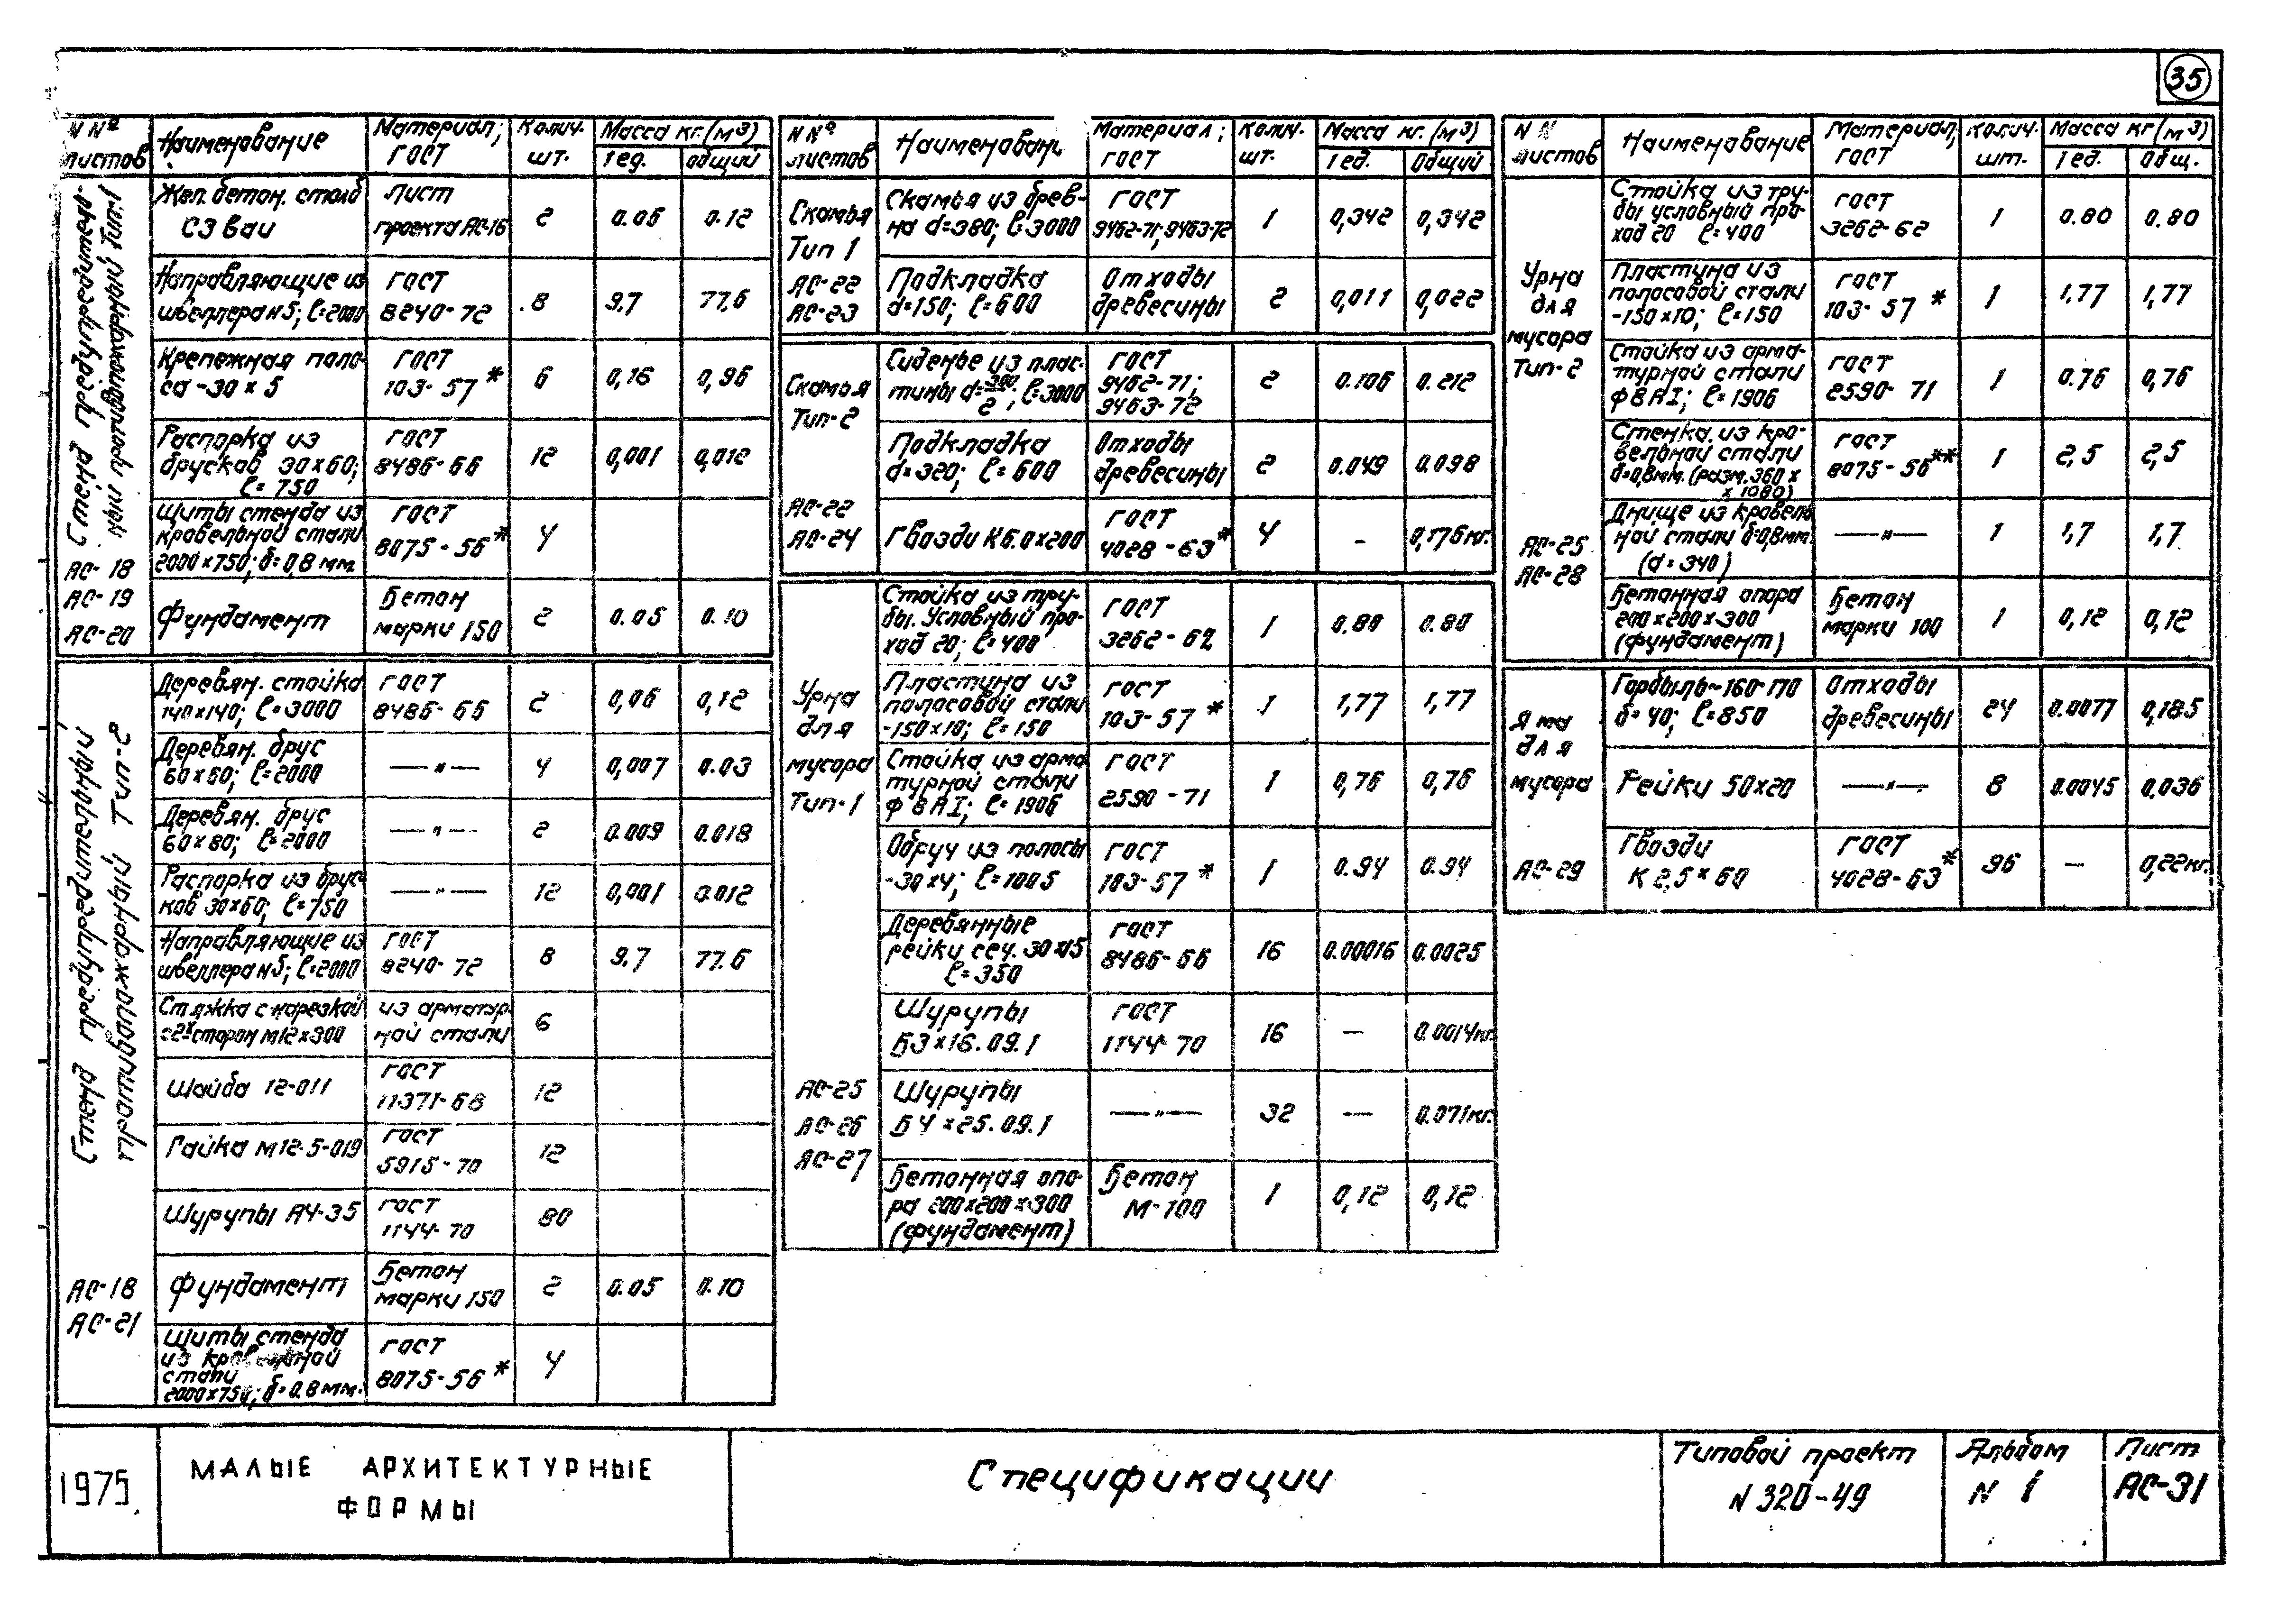 35
N Nº листов
Наименование
Материал; ГОСТ
Колич. шт.
Масса кг. (м³)
1 ед. общий
Стенд предупредительный противопожарный тип-1
АС-18
АС-19
АС-20
Жел. бетон. столб СЗ ваи Лист проекта АС-16 2 0.06 0.12
Направляющие из швеллера н5; ℓ=2000 ГОСТ 8240-72 8 9.7 77.6
Крепежная полоса -30×5 ГОСТ 103-57* 6 0,16 0,96
Распорка из брусков 30×60; ℓ=750 ГОСТ 8486-66 12 0,001 0,012
Щиты стенда из кровельной стали 2000×750; δ=0,8 мм. ГОСТ 8075-56* 4
Фундамент Бетон марки 150 2 0.05 0.10
Стенд предупредительный противопожарный Тип-2
АС-18
АС-21
Деревян. стойка 140×140; ℓ=3000 ГОСТ 8486-66 2 0,06 0,12
Деревян. брус 60×60; ℓ=2000 —"— 4 0,007 0.03
Деревян. брус 60×80; ℓ=2000 —"— 2 0.009 0.018
Распорка из брусков 30×60; ℓ=750 —"— 12 0,001 0.012
Направляющие из швеллера н5; ℓ=2000 ГОСТ 8240-72 8 9.7 77.6
Стяжка с нарезкой с 2ˣ сторон М12×300 из арматурной стали 6
Шайба 12-011 ГОСТ 11371-68 12
Гайка М12.5-019 ГОСТ 5915-70 12
Шурупы А4-35 ГОСТ 1144-70 80
Фундамент Бетон марки 150 2 0.05 0.10
Щиты стенда из кровельной стали 2000×750; δ=0.8 мм. ГОСТ 8075-56* 4
N Nº листов
Материал; ГОСТ
Колич. шт.
Масса кг. (м³)
1 ед. Общий
Скамья Тип 1
АС-22
АС-23
Скамья из бревна d=380; ℓ=3000 ГОСТ 9462-71; 9463-72 1 0,342 0,342
Подкладка d=150; ℓ=600 Отходы древесины 2 0,011 0,022
Скамья Тип-2
АС-22
АС-24
Сиденье из пластины d=380/2; ℓ=3000 ГОСТ 9462-71; 9463-72 2 0.106 0.212
Подкладка d=320; ℓ=600 Отходы древесины 2 0.049 0.098
Гвозди К6.0×200 ГОСТ 4028-63* 4 - 0,176 кг.
Урна для мусора Тип-1
АС-25
АС-26
АС-27
Стойка из трубы. Условный проход 20; ℓ=400 ГОСТ 3262-62 1 0.80 0.80
Пластина из полосовой стали -150×10; ℓ=150 ГОСТ 103-57* 1 1,77 1,77
Стойка из арматурной стали ф8АI; ℓ=1906 ГОСТ 2590-71 1 0,76 0,76
Обруч из полосы -30×4; ℓ=1005 ГОСТ 103-57* 1 0.94 0.94
Деревянные рейки сеч. 30×15 ℓ=350 ГОСТ 8486-66 16 0.00016 0.0025
Шурупы Б3×16.09.1 ГОСТ 1144-70 16 — 0.0014кг.
Шурупы Б4×25.09.1 —"— 32 — 0.071кг.
Бетонная опора 200×200×300 (фундамент) Бетон М-100 1 0,12 0,12
N N листов
Наименование
Материал, ГОСТ
Колич. шт.
Масса кг (м³)
1 ед. Общ.
Урна для мусора Тип-2
АС-25
АС-28
Стойка из трубы условный проход 20 ℓ=400 ГОСТ 3262-62 1 0.80 0.80
Пластина из полосовой стали -150×10; ℓ=150 ГОСТ 103-57* 1 1,77 1,77
Стойка из арматурной стали ф8АI; ℓ=1906 ГОСТ 2590-71 1 0.76 0,76
Стенка из кровельной стали d=0,8мм. (разм. 360××1080) ГОСТ 8075-56** 1 2,5 2,5
Днище из кровельной стали δ=0,8мм. (d=340) —"— 1 1,7 1,7
Бетонная опора 200×200×300 (фундамент) Бетон марки 100 1 0,12 0,12
Яма для мусора
АС-29
Горбыль~160-170 δ=40; ℓ=850 Отходы древесины 24 0.0077 0,185
Рейки 50×20 —"— 8 0.0045 0,036
Гвозди К 2,5×60 ГОСТ 4028-63* 96 — 0,22кг.
1975.
МАЛЫЕ АРХИТЕКТУРНЫЕ
ФОРМЫ
Спецификации
Типовой проект
N 320-49
Альбом
N 1
Лист
АС-31